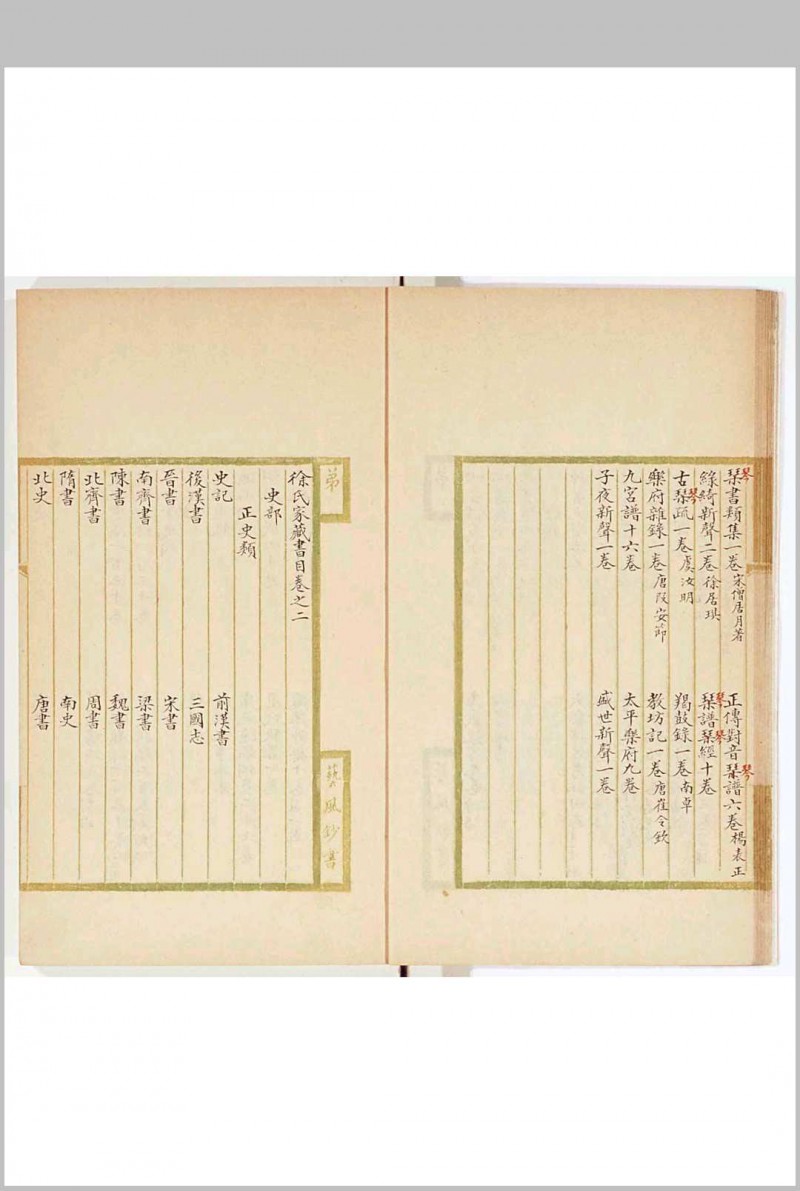 琹書類集一卷宋僧居月著 正傳對音琹譜六卷楊表正
琴 琴
綠綺新聲二卷徐居琪 琹譜琹經十卷
琴 琴
古琹疏一卷虞汝明 羯鼓錄一卷南卓
琴
樂府雜錄一卷唐段安節 教坊記一卷唐崔令欽
九宮譜十六卷 太平樂府九卷
子夜新聲一卷 盛世新聲一卷
第
藝風鈔書
徐氏家藏書目卷之二
史部
正史類
史記 前漢書
後漢書 三國志
晉書 宋書
南齊書 梁書
陳書 魏書
北齊書 周書
隋書 南史
北史 唐書